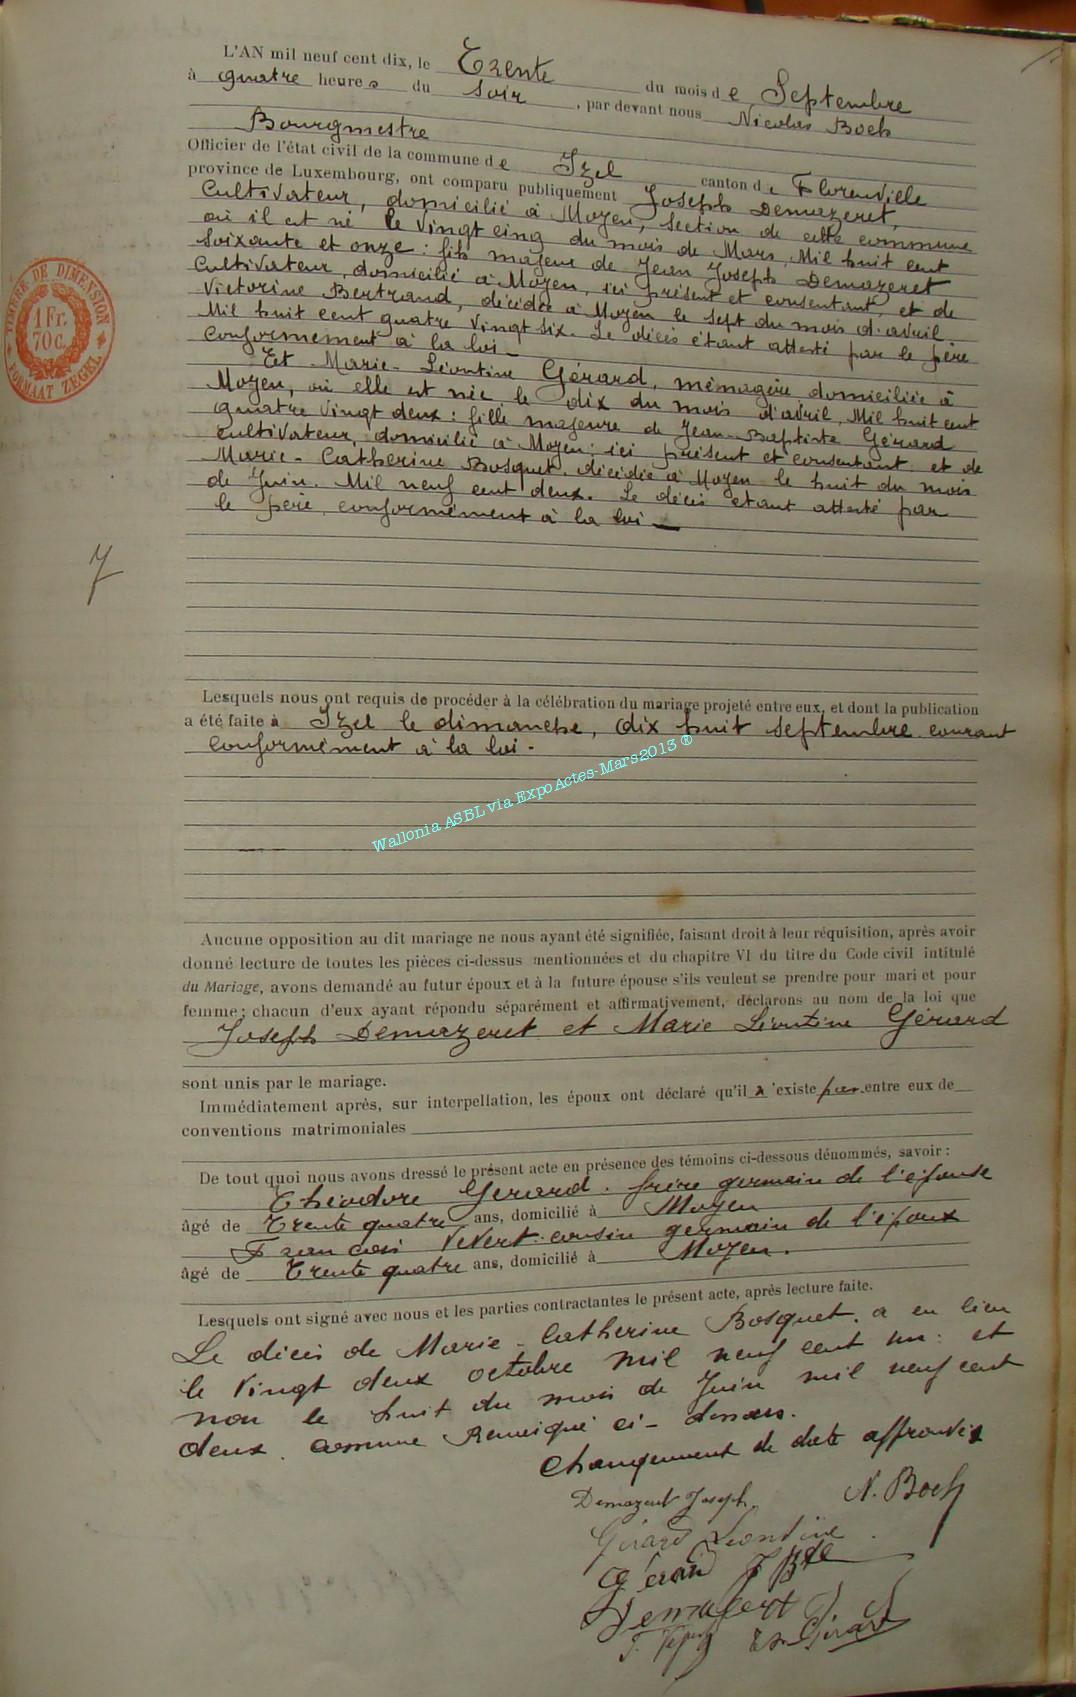 L'AN mil neuf cent dix, le Trente du mois de Septembre
à quatre heures du soir, par devant nous Nicolas Boch
Bourgmestre
Officier de l'état civil de la commune de Izel canton de Florenville
province de Luxembourg, ont comparu publiquement Joseph Demazeret,
Cultivateur, domicilié à Moyen, section de cette commune
où il est né le vingt cinq du mois de Mars, Mil huit cent
soixante et onze : fils majeur de Jean Joseph Demazeret
Cultivateur, domicilié à Moyen, ici présent et consentant, et de
Victorine Bertrand, décédée à Moyen le sept du mois d'avril
Mil huit cent quatre vingt six. Le décès étant attesté par le père
conformément à la loi -
Et Marie-Léontine Gérard, ménagère domiciliée à
Moyen, où elle est née, le dix du mois d'avril, Mil huit cent
quatre vingt deux : fille majeure de Jean-Baptiste Gérard
cultivateur, domicilié à Moyen ; ici présent et consentant. et de
Marie-Catherine Bosquet. décédée à Moyen le huit du mois
de Juin. Mil neuf cent deux. Le décès étant attesté par
le père, conformément à la loi -
7
TIMBRE DE DIMENSION
1 Fr.
70 c.
FORMAAT ZEGEL
Lesquels nous ont requis de procéder à la célébration du mariage projeté entre eux, et dont la publication
a été faite à Izel le dimanche, dix huit septembre courant
conformément à la loi -
Wallonia ASBL via ExpoActes-Mars2013 ®
Aucune opposition au dit mariage ne nous ayant été signifiée, faisant droit à leur réquisition, après avoir
donné lecture de toutes les pièces ci-dessus mentionnées et du chapitre VI du titre du Code civil intitulé
du Mariage, avons demandé au futur époux et à la future épouse s'ils veulent se prendre pour mari et pour
femme ; chacun d'eux ayant répondu séparément et affirmativement, déclarons au nom de la loi que
Joseph Demazeret et Marie Léontine Gérard
sont unis par le mariage.
Immédiatement après, sur interpellation, les époux ont déclaré qu'il n'existe pas entre eux de
conventions matrimoniales
De tout quoi nous avons dressé le présent acte en présence des témoins ci-dessous dénommés, savoir :
Théodore Gérard. frère germain de l'épouse
âgé de Trente quatre ans, domicilié à Moyen
François cousin germain de l'époux
âgé de Trente quatre ans, domicilié à Moyen.
Lesquels ont signé avec nous et les parties contractantes le présent acte, après lecture faite.
Le décès de Marie-Catherine Bosquet. a eu lieu
le vingt deux octobre mil neuf cent un : et
non le huit du mois de Juin mil neuf cent
deux. comme ci-dessus.
Changement de date
Demazeret Joseph. N. Boch
Gérard Léontine.
Gérard J Bte
Demazeret J J
Th Gérard